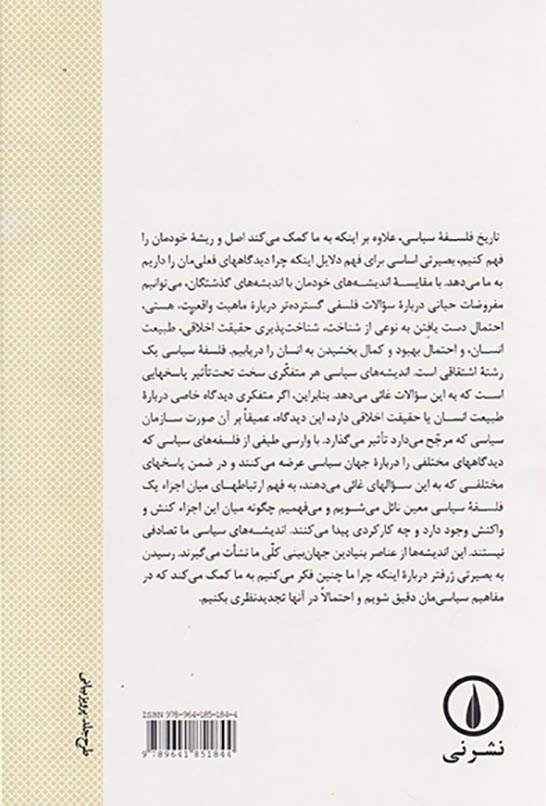 تاریخ فلسفهٔ سیاسی، علاوه بر اینکه به ما کمک می‌کند اصل و ریشهٔ خودمان را
فهم کنیم، بصیرتی اساسی برای فهم دلایل اینکه چرا دیدگاههای فعلی‌مان را داریم
به ما می‌دهد. با مقایسهٔ اندیشه‌های خودمان با اندیشه‌های گذشتگان، می‌توانیم
مفروضات حیاتی دربارهٔ سؤالات فلسفی گسترده‌تر دربارهٔ ماهیت واقعیت، هستی،
احتمال دست یافتن به نوعی از شناخت، شناخت‌پذیری حقیقت اخلاقی، طبیعت
انسان، و احتمال بهبود و کمال بخشیدن به انسان را دریابیم. فلسفهٔ سیاسی یک
رشتهٔ اشتقاقی است. اندیشه‌های سیاسی هر متفکّری سخت تحت‌تأثیر پاسخهایی
است که به این سؤالات غائی می‌دهد. بنابراین، اگر متفکری دیدگاه خاصی دربارهٔ
طبیعت انسان یا حقیقت اخلاقی دارد، این دیدگاه، عمیقاً بر آن صورت سازمان
سیاسی که مرجّح می‌دارد تأثیر می‌گذارد. با وارسی طیفی از فلسفه‌های سیاسی که
دیدگاههای مختلفی را دربارهٔ جهان سیاسی عرضه می‌کنند و در ضمن پاسخهای
مختلفی که به این سؤالهای غائی می‌دهند، به فهم ارتباطهای میان اجزاء یک
فلسفهٔ سیاسی معین نائل می‌شویم و می‌فهمیم چگونه میان این اجزاء کنش و
واکنش وجود دارد و چه کارکردی پیدا می‌کنند. اندیشه‌های سیاسی ما تصادفی
نیستند. این اندیشه‌ها از عناصر بنیادین جهان‌بینی کلّی ما نشأت می‌گیرند. رسیدن
به بصیرتی ژرفتر دربارهٔ اینکه چرا ما چنین فکر می‌کنیم به ما کمک می‌کند که در
مفاهیم سیاسی‌مان دقیق شویم و احتمالاً در آنها تجدیدنظری بکنیم.
طرح جلد: پرویز بیانی
ISBN 978-964-185-184-4
9 789641 851844
نشرنی